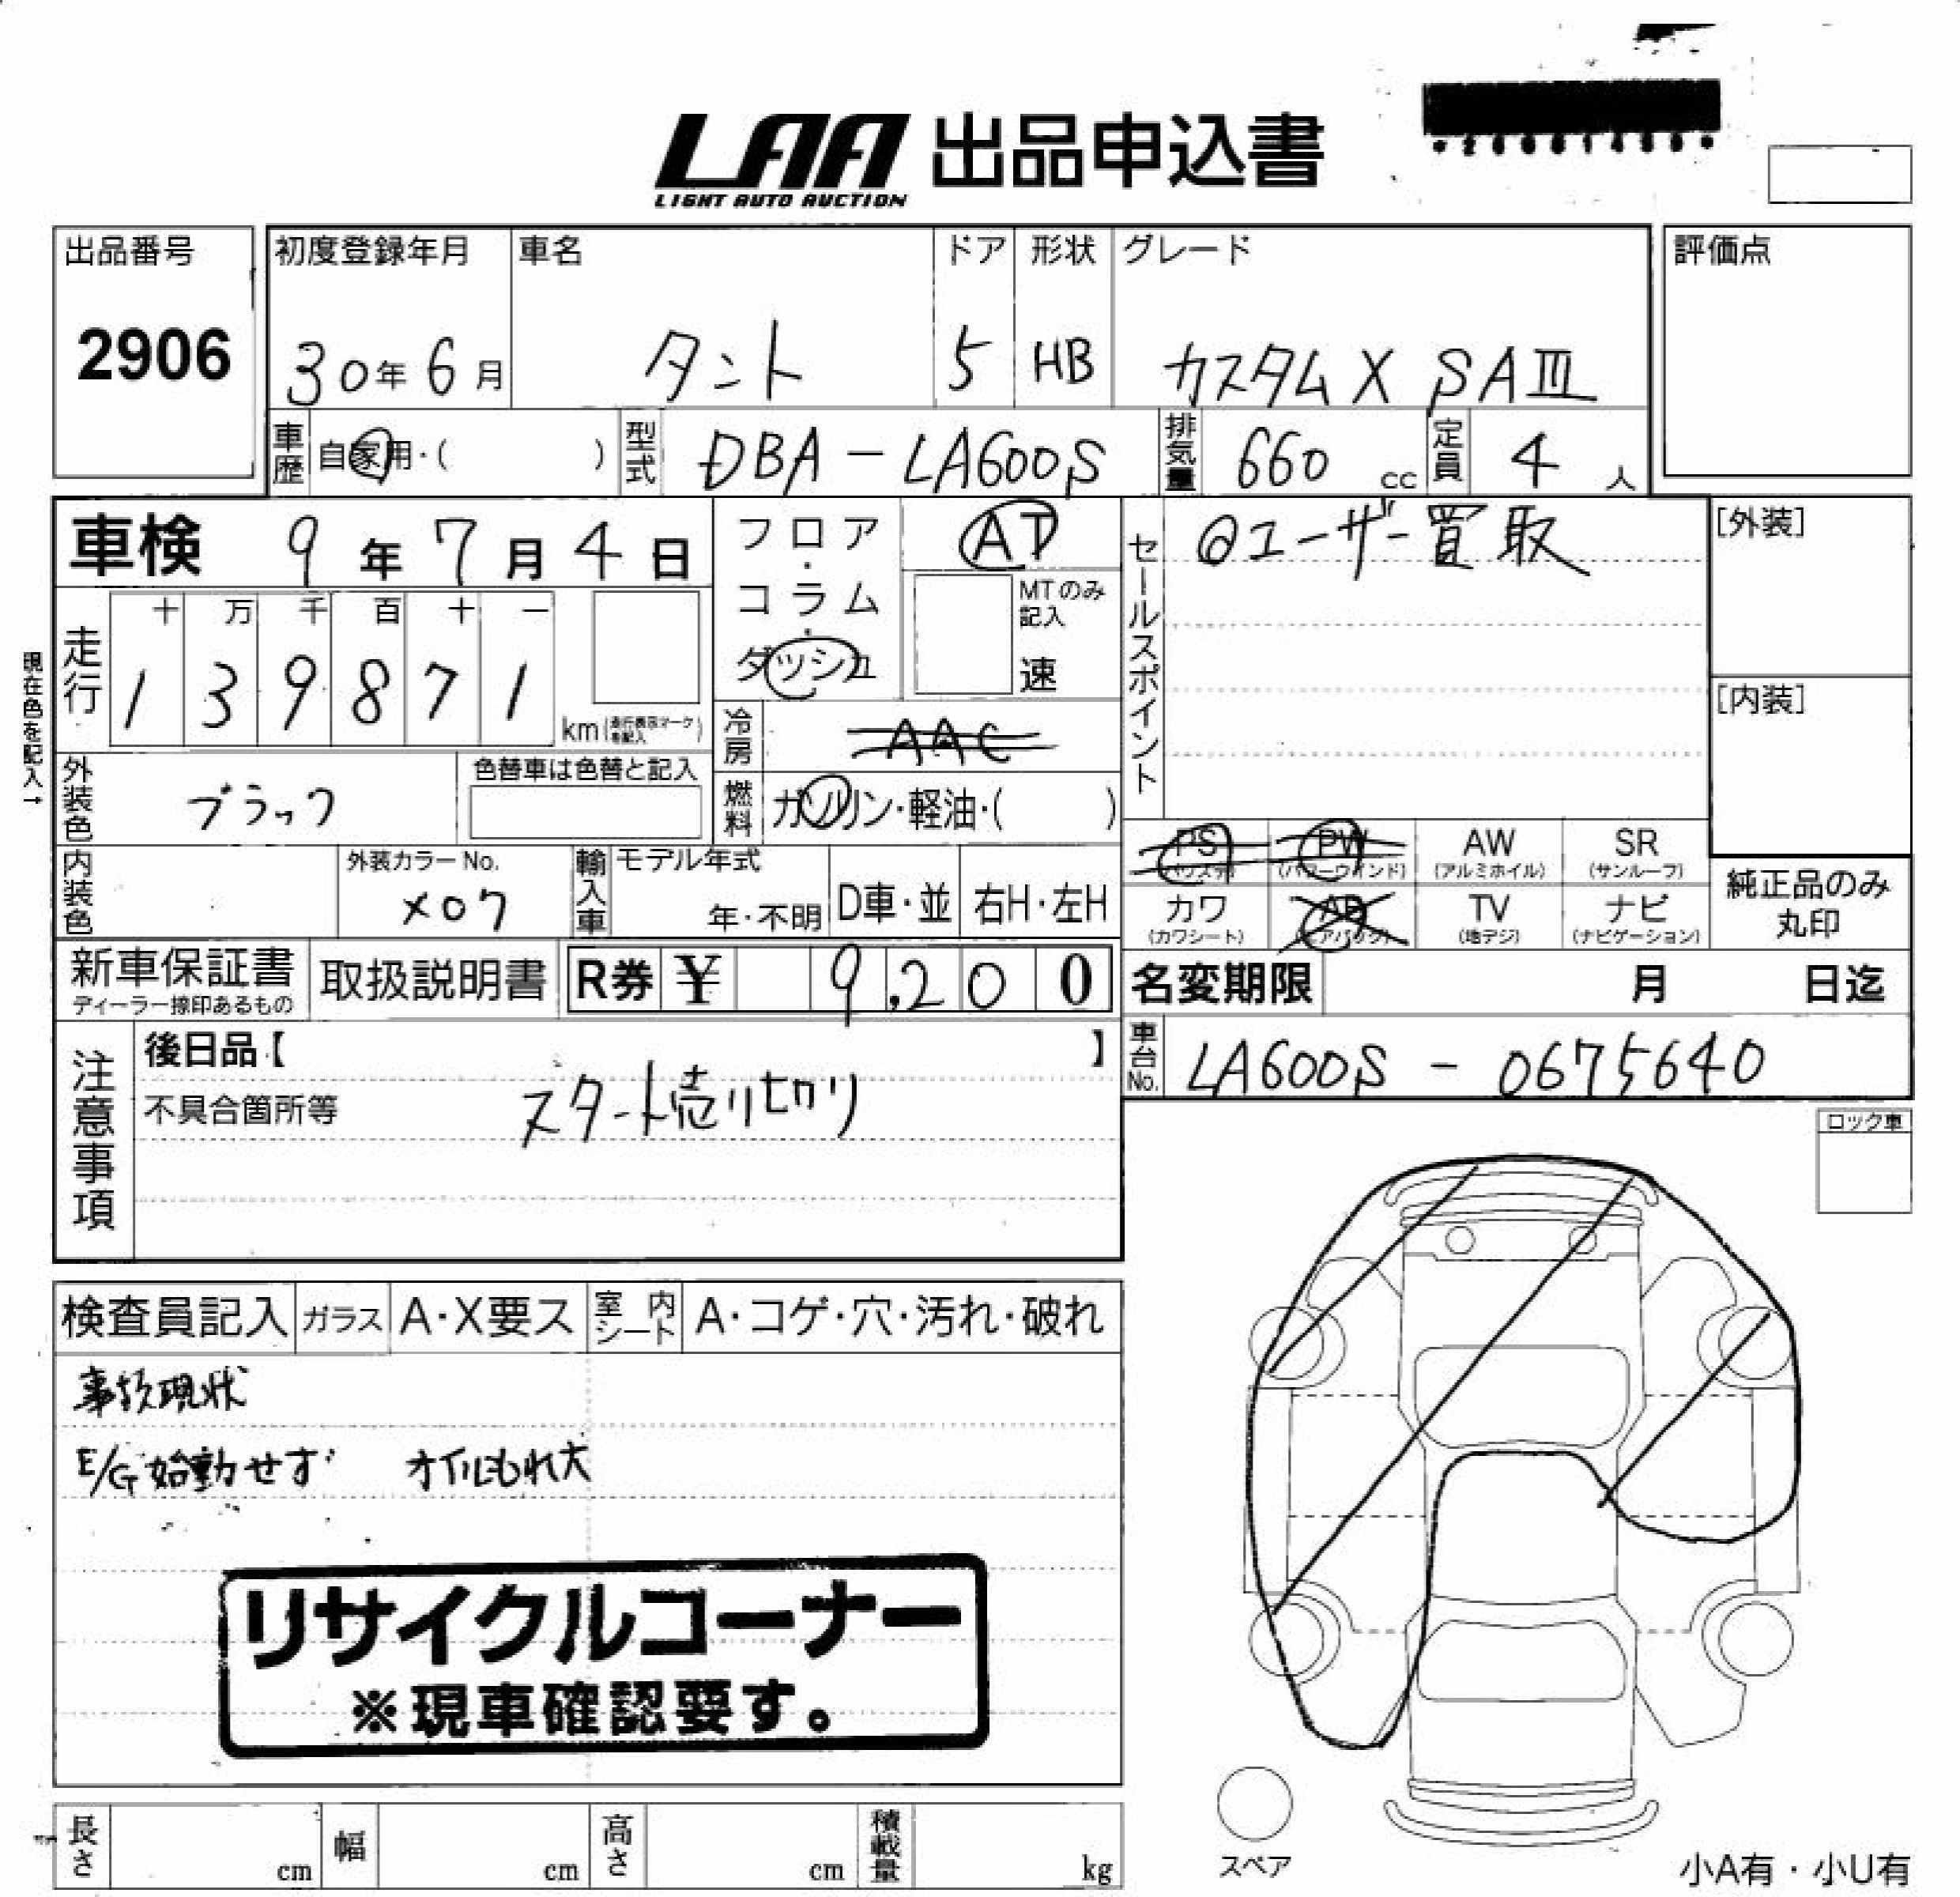 LAA 出品申込書
LIGHT AUTO AUCTION
出品番号
2906
初度登録年月
30年6月
車名
タント
ドア
5
形状
HB
グレード
カスタムX SAⅢ
評価点
車歴
自家用・( )
型式
DBA-LA600S
排気量
660 cc
定員
4 人
車検 9年7月4日
フロア・コラム・ダッシュ
AT
MTのみ記入
速
セールスポイント
@ユーザー買取
[外装]
[内装]
現在色を記入→
走行
十 万 千 百 十 一
1 3 9 8 7 1
km(走行表示マークを記入)
冷房
AAC
外装色
ブラック
色替車は色替と記入
燃料
ガソリン・軽油・( )
PS
PW
(パワーウインド)
AW
(アルミホイル)
SR
(サンルーフ)
内装色
外装カラーNo.
X07
輸入車
モデル年式
年・不明
D車・並
右H・左H
カワ
(カワシート)
AB
(エアバッグ)
TV
(地デジ)
ナビ
(ナビゲーション)
純正品のみ
丸印
新車保証書
ディーラー捺印あるもの
取扱説明書
R券 ¥ 9,200
名変期限 月 日迄
車台No.
LA600S - 0675640
注意事項
後日品【 】
不具合箇所等
スタート売り切り
ロック車
検査員記入
ガラス
A・X要ス
室内シート
A・コゲ・穴・汚れ・破れ
事故現状
E/G始動せず オイルもれ大
リサイクルコーナー
※現車確認要す。
長さ cm
幅 cm
高さ cm
積載量 kg
スペア
小A有・小U有